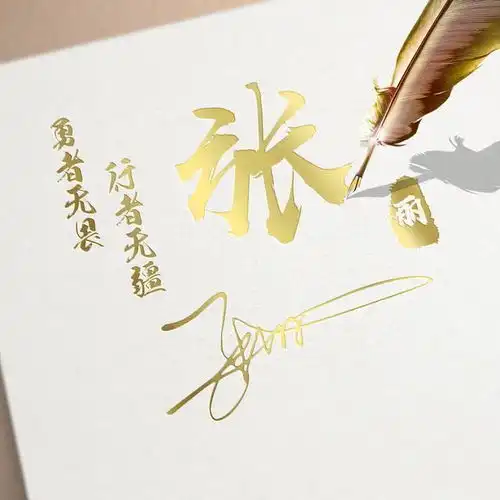 张
丽
行者无疆
勇者无畏